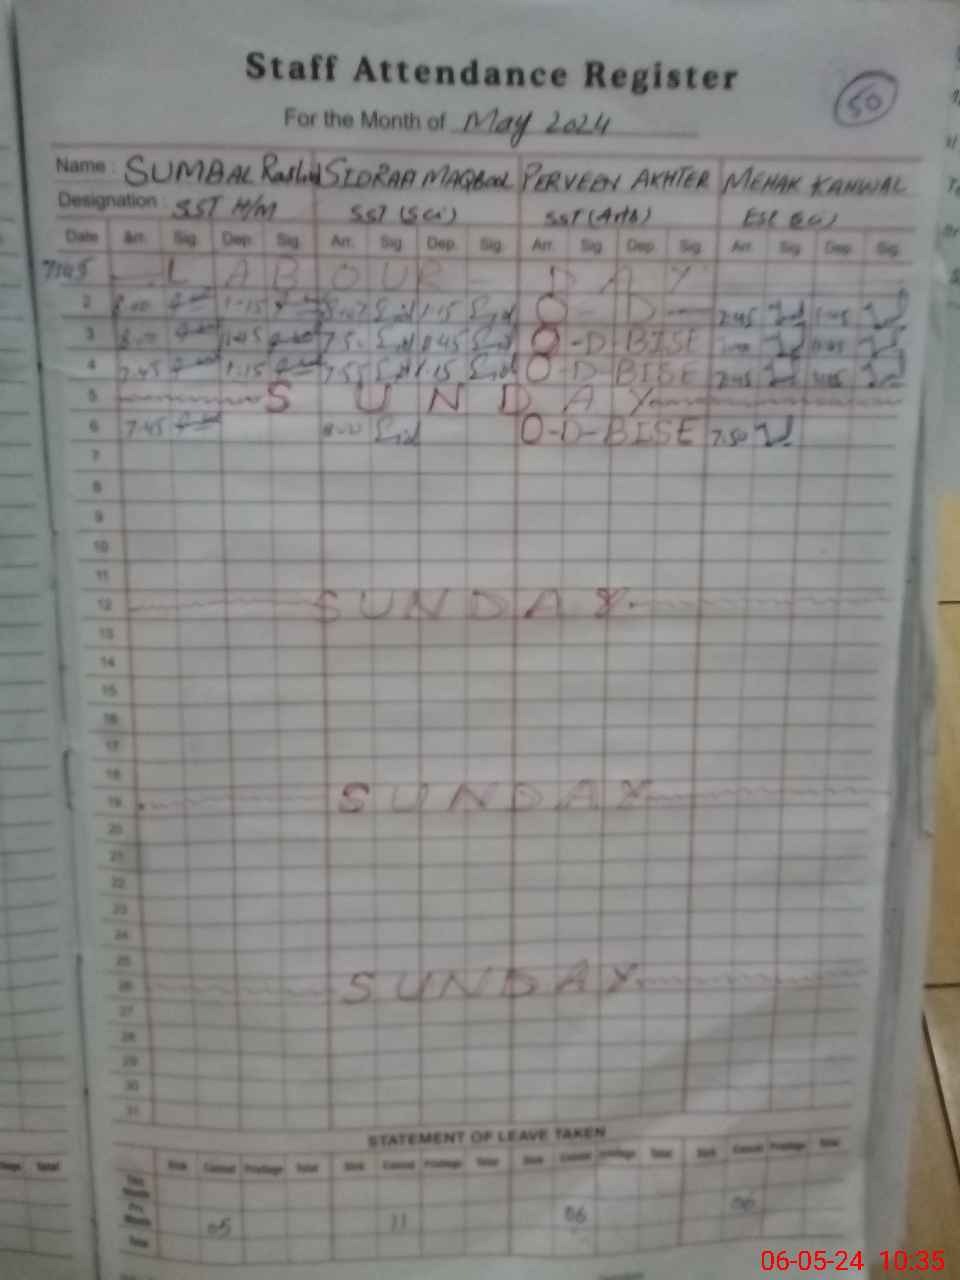 Staff Attendance Register
50
For the Month of May 2024
Name : SUMBAL Rashid SIDRAA MAQBOOL PERVEEN AKHTER MEHAK KANWAL
Designation : SST H/M SST (Sci) SST (Arts)
Date Arr. Sig. Dep. Sig. Arr. Sig. Dep. Sig. Arr. Sig. Dep. Sig. Arr. Sig. Dep. Sig.
LABOUR DAY
2 8.00 1-15 1.15 O - D 7.45
3 8.00 O - D BISE
4 7.45 1.15 7.55 1.15 O - D - BISE 7.45
5 SUNDAY
6 7.45 8.00 O-D-BISE 7.50
7
8
9
10
11
12 SUNDAY
13
14
15
16
17
18
19 SUNDAY
20
21
22
23
24
25
26 SUNDAY
27
28
29
30
31
STATEMENT OF LEAVE TAKEN
Sick Casual Privilege Total Sick Casual Privilege Total Sick Casual Privilege Total Sick Casual Privilege Total
This Month
Pre. Month 05 11 06 06
Total
06-05-24 10:35